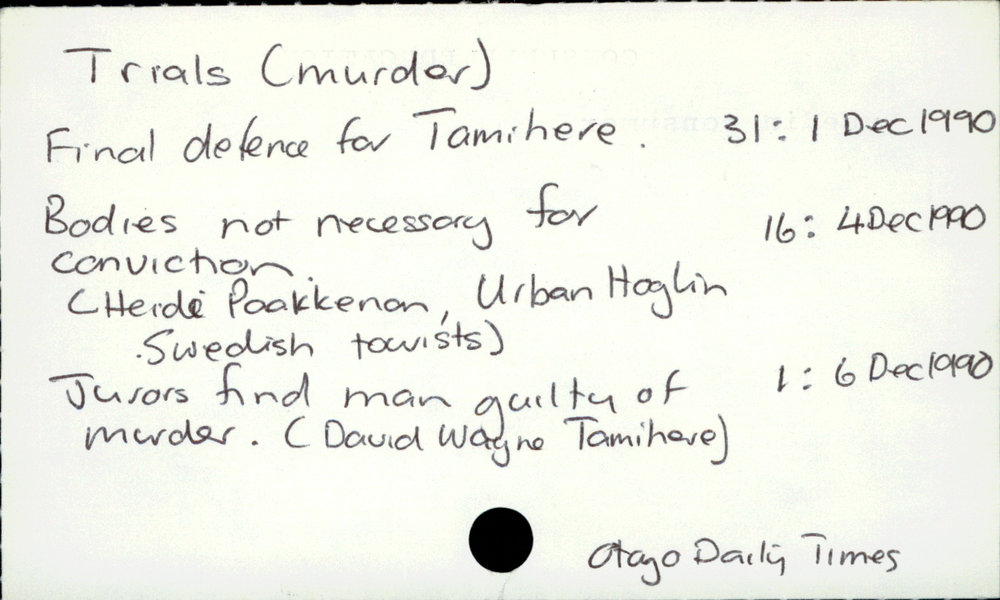 Trials (murder)
Final defence for Tamihere. 31: 1 Dec 1990
Bodies not necessary for 16: 4 Dec 1990
conviction.
(Heidi Paakkenon, Urban Hoglin
Swedish tourists)
Jurors find man guilty of 1: 6 Dec 1990
murder. (David Wayne Tamihere)
Otago Daily Times